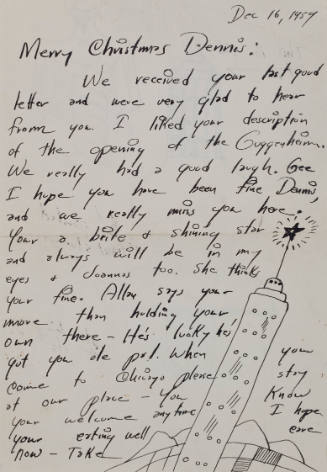 Dec 16, 1959
Merry Christmas Dennis:
We received your last good
letter and were very glad to hear
from you. I liked your description
of the opening of the Guggenheim.
We really had a good laugh. Gee
I hope you have been fine Dennis,
and we really miss you here.
Your a brite & shining star
and always will be in my
eyes & Joannas too. She thinks
your fine. Allan says your
more than holding your
own there - He's lucky he's
got you ole pal. When you
come to Chicago please stay
at our place - you know
your welcome anytime I hope
your eating well
now - Take care